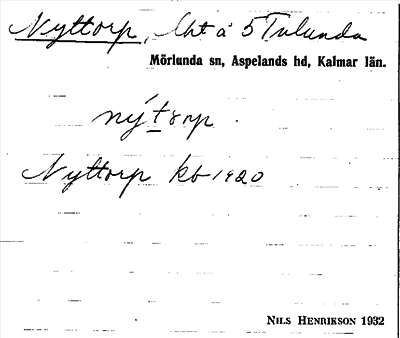 Nyttorp, lht å 5 Tulunda
Mörlunda sn, Aspelands hd, Kalmar län.
nýtorp.
Nyttorp kb 1920
NILS HENRIKSON 1932